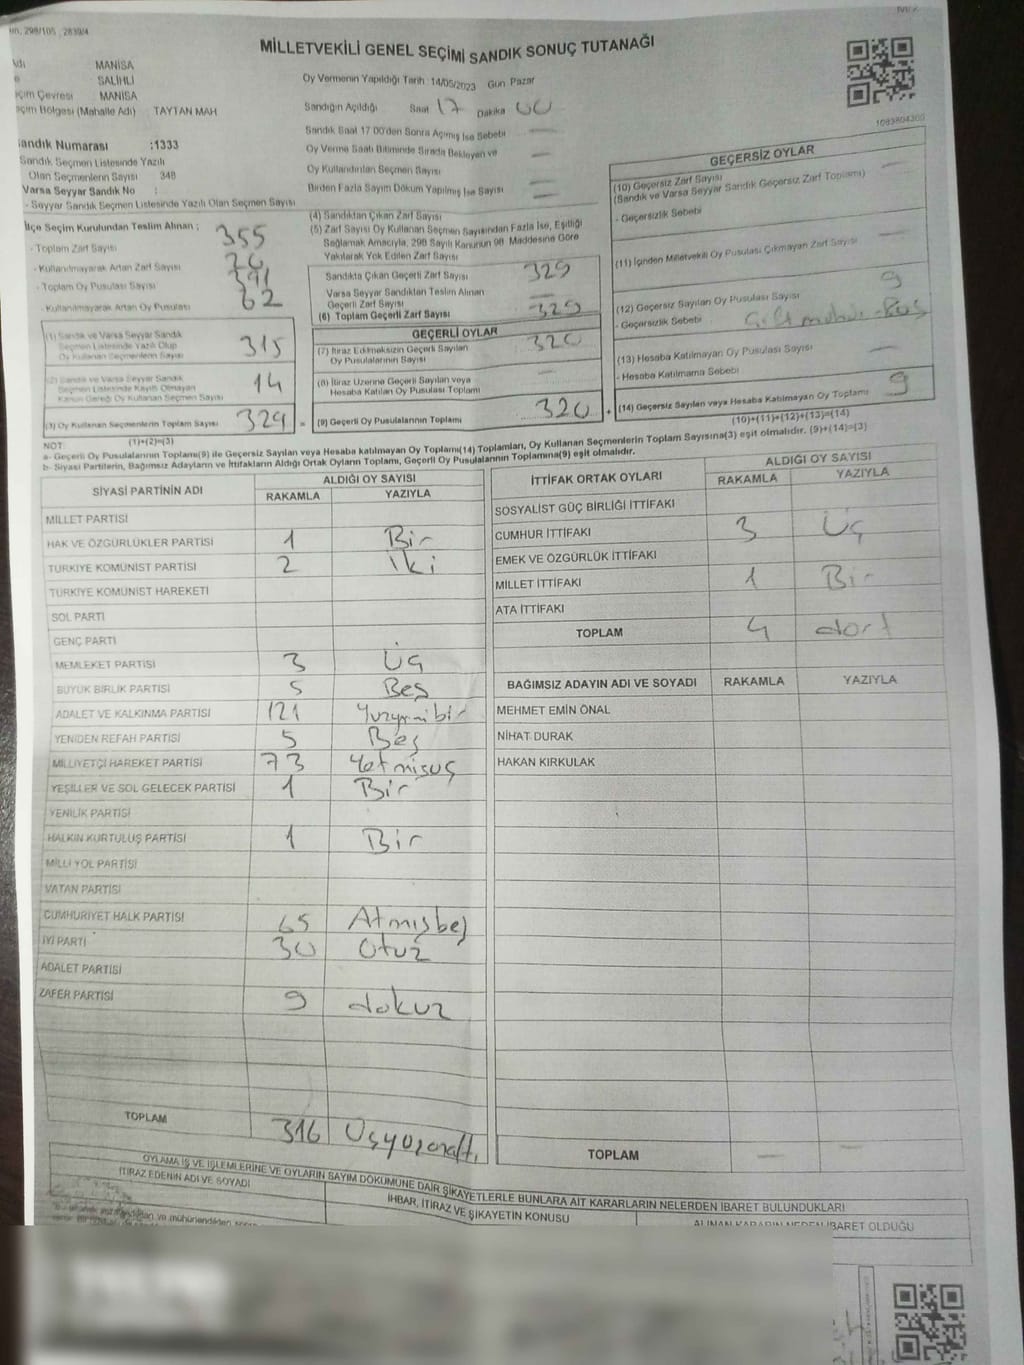 298/105 , 2839/4
MİLLETVEKİLİ GENEL SEÇİMİ SANDIK SONUÇ TUTANAĞI
MANİSA
SALİHLİ
çim Çevresi MANİSA
çim Bölgesi (Mahalle Adı) : TAYTAN MAH
Oy Vermenin Yapıldığı Tarih : 14/05/2023 Gün Pazar
Sandığın Açıldığı Saat 17 Dakika 00
Sandık Saat 17 00'den Sonra Açılmış İse Sebebi —
Oy Verme Saati Bitiminde Sırada Bekleyen ve
Oy Kullandırılan Seçmen Sayısı —
Birden Fazla Sayım Döküm Yapılmış İse Sayısı —
1083804300
Sandık Numarası :1333
Sandık Seçmen Listesinde Yazılı
Olan Seçmenlerin Sayısı : 348
Varsa Seyyar Sandık No :
- Seyyar Sandık Seçmen Listesinde Yazılı Olan Seçmen Sayısı
İlçe Seçim Kurulundan Teslim Alınan ;
- Toplam Zarf Sayısı 355
- Kullanılmayarak Artan Zarf Sayısı
- Toplam Oy Pusulası Sayısı
- Kullanılmayarak Artan Oy Pusulası 62
(1) Sandık ve Varsa Seyyar Sandık
Seçmen Listesinde Yazılı Olup
Oy Kullanan Seçmenlerin Sayısı 315
(2) Sandık ve Varsa Seyyar Sandık
Seçmen Listesinde Kayıtlı Olmayan
Kanun Gereği Oy Kullanan Seçmen Sayısı 14
(3) Oy Kullanan Seçmenlerin Toplam Sayısı 329
(1)+(2)=(3)
(4) Sandıktan Çıkan Zarf Sayısı
(5) Zarf Sayısı Oy Kullanan Seçmen Sayısından Fazla İse, Eşitliği
Sağlamak Amacıyla, 298 Sayılı Kanunun 98 Maddesine Göre
Yakılarak Yok Edilen Zarf Sayısı
Sandıkta Çıkan Geçerli Zarf Sayısı 329
Varsa Seyyar Sandıktan Teslim Alınan
Geçerli Zarf Sayısı —
(6) Toplam Geçerli Zarf Sayısı 329
GEÇERLİ OYLAR
(7) İtiraz Edilmeksizin Geçerli Sayılan
Oy Pusulalarının Sayısı 320
(8) İtiraz Üzerine Geçerli Sayılan veya
Hesaba Katılan Oy Pusulası Toplamı —
(9) Geçerli Oy Pusulalarının Toplamı 320
GEÇERSİZ OYLAR
(10) Geçersiz Zarf Sayısı
(Sandık ve Varsa Seyyar Sandık Geçersiz Zarf Toplamı) —
- Geçersizlik Sebebi
(11) İçinden Milletvekili Oy Pusulası Çıkmayan Zarf Sayısı —
(12) Geçersiz Sayılan Oy Pusulası Sayısı 9
- Geçersizlik Sebebi
(13) Hesaba Katılmayan Oy Pusulası Sayısı —
- Hesaba Katılmama Sebebi
(14) Geçersiz Sayılan veya Hesaba Katılmayan Oy Toplamı 9
(10)+(11)+(12)+(13)=(14)
NOT
a- Geçerli Oy Pusulalarının Toplamı(9) ile Geçersiz Sayılan veya Hesaba katılmayan Oy Toplamı(14) Toplamları, Oy Kullanan Seçmenlerin Toplam Sayısına(3) eşit olmalıdır. (9)+(14)=(3)
b- Siyasi Partilerin, Bağımsız Adayların ve İttifakların Aldığı Ortak Oyların Toplamı, Geçerli Oy Pusulalarının Toplamına(9) eşit olmalıdır.
SİYASİ PARTİNİN ADI ALDIĞI OY SAYISI
RAKAMLA YAZIYLA
MİLLET PARTİSİ
HAK VE ÖZGÜRLÜKLER PARTİSİ 1 Bir
TÜRKİYE KOMÜNİST PARTİSİ 2 iki
TÜRKİYE KOMÜNİST HAREKETİ
SOL PARTİ
GENÇ PARTİ
MEMLEKET PARTİSİ 3 Üç
BÜYÜK BİRLİK PARTİSİ 5 Beş
ADALET VE KALKINMA PARTİSİ 121 Yuzyirmibir
YENİDEN REFAH PARTİSİ 5 Beş
MİLLİYETÇİ HAREKET PARTİSİ 73 Yetmisuç
YEŞİLLER VE SOL GELECEK PARTİSİ 1 Bir
YENİLİK PARTİSİ
HALKIN KURTULUŞ PARTİSİ 1 Bir
MİLLİ YOL PARTİSİ
VATAN PARTİSİ
CUMHURİYET HALK PARTİSİ 65 Atmışbeş
İYİ PARTİ 30 Otuz
ADALET PARTİSİ
ZAFER PARTİSİ 9 dokuz
TOPLAM 316 Üçyüzonaltı
İTTİFAK ORTAK OYLARI ALDIĞI OY SAYISI
RAKAMLA YAZIYLA
SOSYALİST GÜÇ BİRLİĞİ İTTİFAKI
CUMHUR İTTİFAKI 3 Üç
EMEK VE ÖZGÜRLÜK İTTİFAKI
MİLLET İTTİFAKI 1 Bir
ATA İTTİFAKI
TOPLAM 4 dört
BAĞIMSIZ ADAYIN ADI VE SOYADI RAKAMLA YAZIYLA
MEHMET EMİN ÖNAL
NİHAT DURAK
HAKAN KIRKULAK
TOPLAM — —
OYLAMA İŞ VE İŞLEMLERİNE VE OYLARIN SAYIM DÖKÜMÜNE DAİR ŞİKAYETLERLE BUNLARA AİT KARARLARIN NELERDEN İBARET BULUNDUKLARI
İTİRAZ EDENİN ADI VE SOYADI
İHBAR, İTİRAZ VE ŞİKAYETİN KONUSU
ALINAN KARARIN NEDEN İBARET OLDUĞU